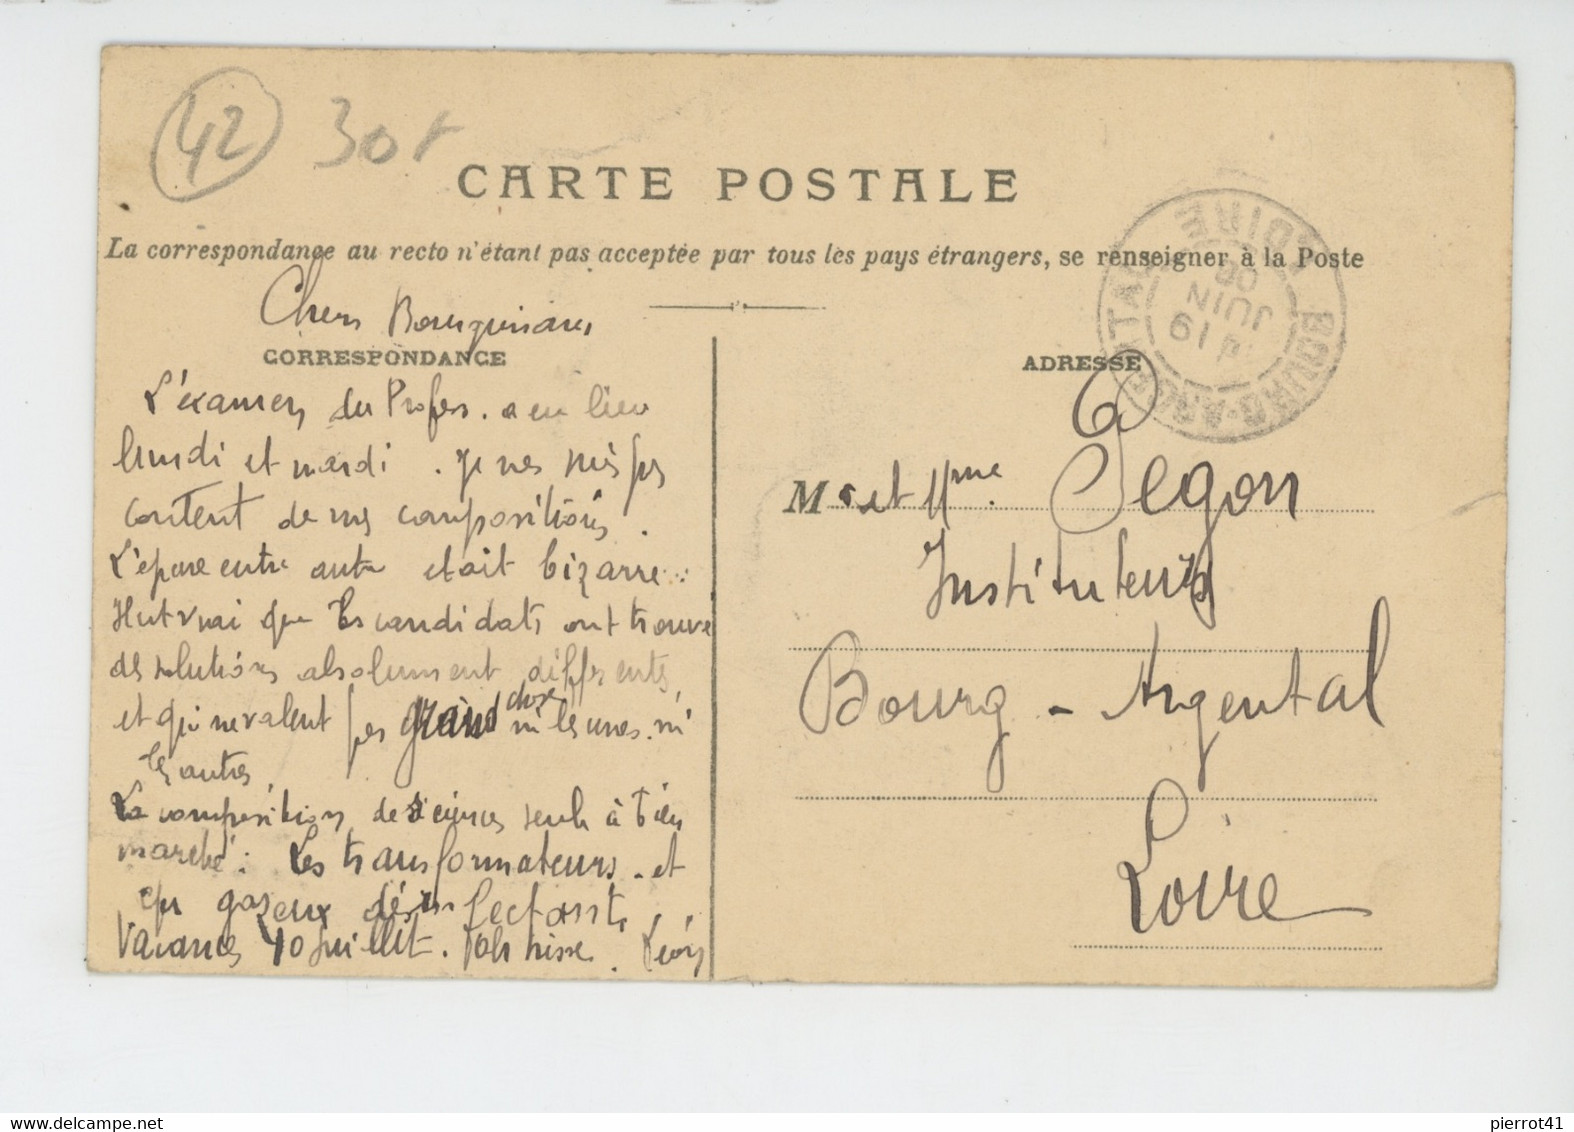 42 30f
CARTE POSTALE
La correspondance au recto n'étant pas acceptée par tous les pays étrangers, se renseigner à la Poste
Chers
CORRESPONDANCE
ADRESSE
BOURG-ARGENTAL LOIRE
19
JUIN
L'examen du Profes. a eu lieu
lundi et mardi. Je ne suis pas
content de mes compositions.
entre autre était bizarre :
vrai que les candidats ont trouvé
de solutions absolument différentes
et qui ne valent pas grand chose ni les unes ni
les autres
La composition de sciences seule a bien
marché : Les transformateurs et
gazeux
Vacances 40 juillet. Léon
M. et Mme. Pegon
Instituteurs
Bourg - Argental
Loire
pierrot41